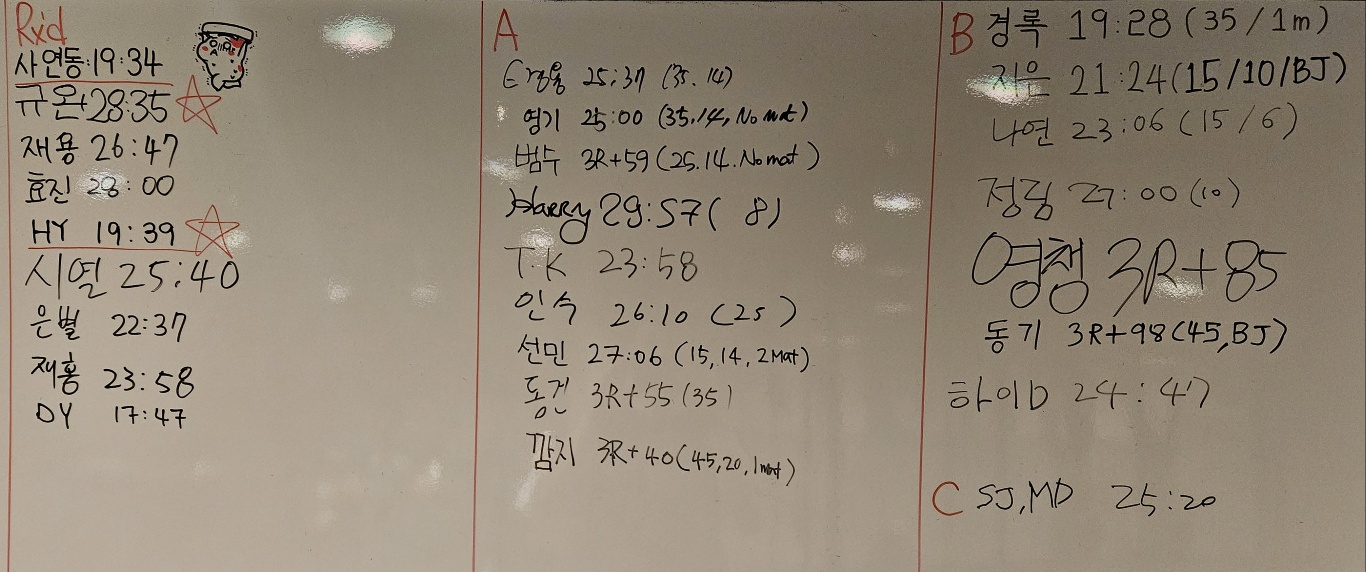 Rxd
사연동 19:34
규온 28:35
재용 26:47
효진 28:00
HY 19:39
시열 25:40
은별 22:37
재홍 23:58
DY 17:47
A
25:37 (35.14)
영기 25:00 (35.14, No mat)
범수 3R+59 (25.14. No mat)
Harry 29:57 ( 8)
T.K 23:58
인숙 26:10 (25)
선민 27:06 (15, 14, 2Mat)
동건 3R+55 (35)
깜지 3R+40 (45, 20, 1mat)
B 경록 19:28 (35 / 1m)
지은 21:24 (15/10/BJ)
나연 23:06 (15 / 6)
정림 27:00 (10)
영챙 3R+85
동기 3R+98 (45, BJ)
하이D 24:47
C SJ, MD 25:20